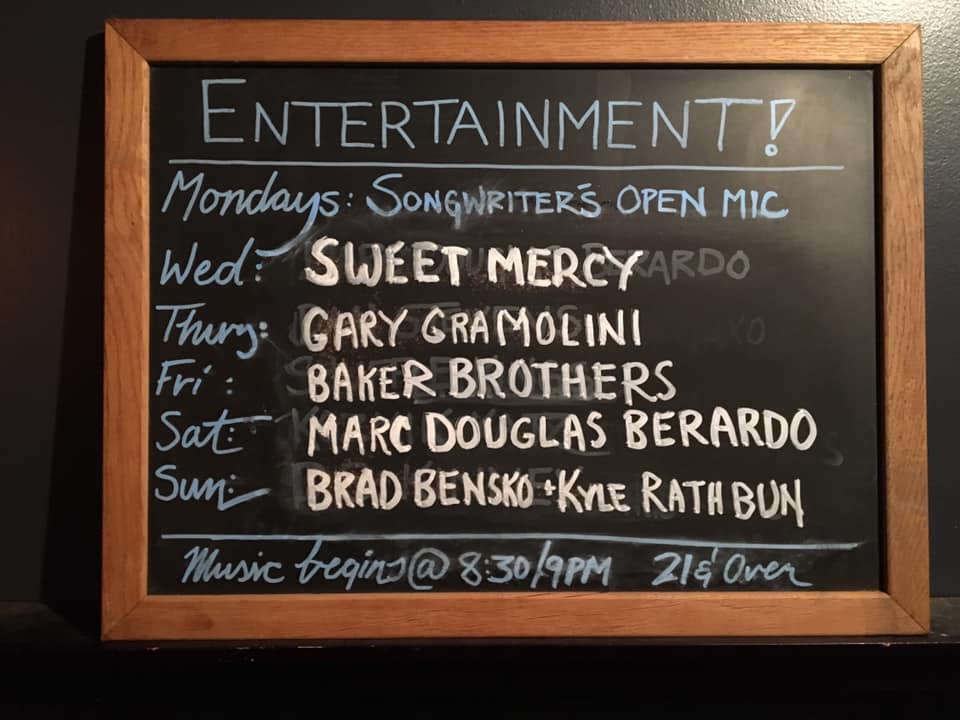 ENTERTAINMENT!
Mondays: SONGWRITER'S OPEN MIC
Wed: SWEET MERCY
Thurs: GARY GRAMOLINI
Fri: BAKER BROTHERS
Sat: MARC DOUGLAS BERARDO
Sun: BRAD BENSKO + KYLE RATHBUN
Music begins @ 8:30/9PM 21 & Over